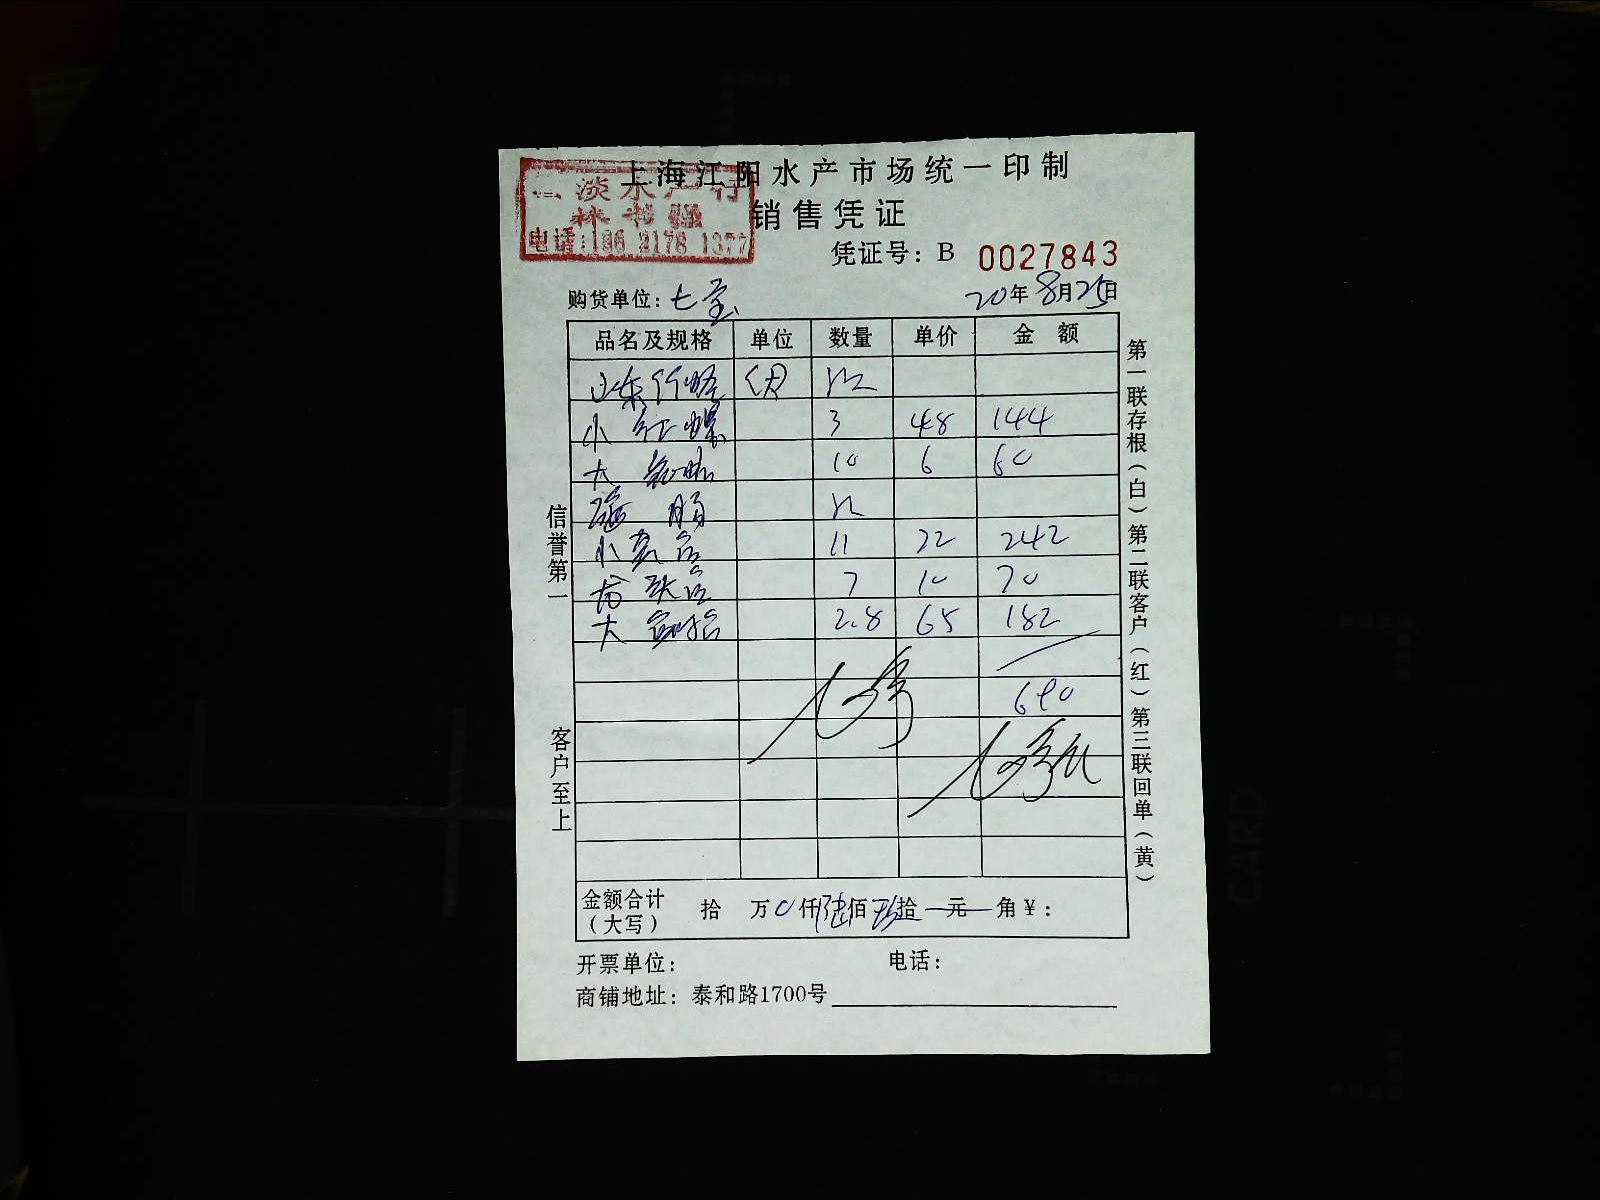 上海江阳水产市场统一印制
淡水产行
电话:136 2178 1377
销售凭证
凭证号: B 0027843
购货单位: 七宝
20年8月25日
品名及规格 单位 数量 单价 金 额
山东
小红螺 3 48 144
大 10 6 60
小黄 11 22 242
龙头 7 10 70
大 2.8 65 182
690
金额合计（大写） 拾 万0仟陆佰玖拾 元 角¥:
开票单位: 电话:
商铺地址: 泰和路1700号
信誉第一
客户至上
第一联存根（白）第二联客户（红）第三联回单（黄）